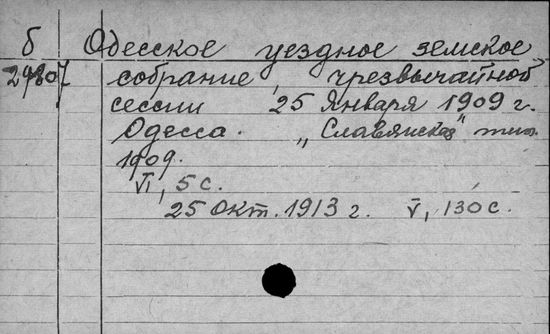 б Одесское уездное земское
29807 собрание, чрезвычайной
сессии 25 января 1909 г.
Одесса. „Славянская" тип.
1909.
VI, 5 с.
25 окт. 1913 г. V, 130 с.